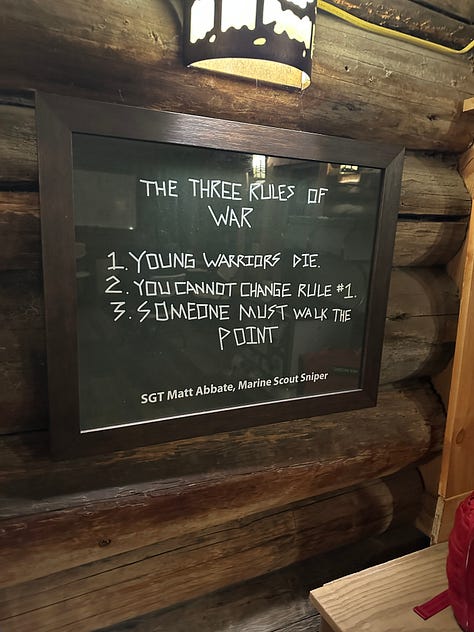 THE THREE RULES OF
WAR
1. YOUNG WARRIORS DIE.
2. YOU CANNOT CHANGE RULE #1.
3. SOMEONE MUST WALK THE
POINT
SGT Matt Abbate, Marine Scout Sniper